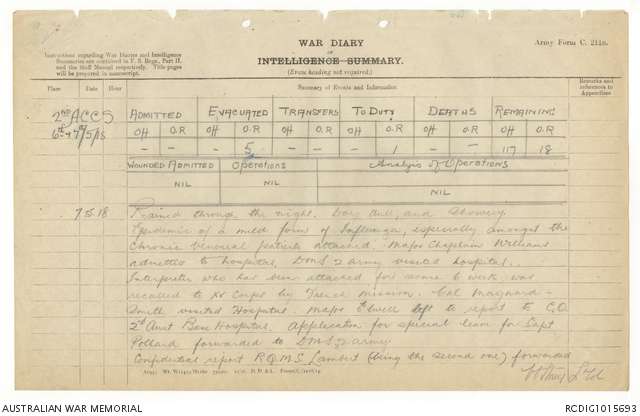 WAR DIARY
or
INTELLIGENCE SUMMARY.
(Erase heading not required.)
Army Form C. 2118.
Instructions regarding War Diaries and Intelligence
Summaries are contained in F. S. Regs., Part II.
and the Staff Manual respectively. Title pages
will be prepared in manuscript.
Place Date Hour Summary of Events and Information Remarks and references to Appendices
2nd ACCS
6th + 7th/5/18
ADMITTED EVACUATED TRANSFERS TO DUTY DEATHS REMAINING
Off O.R Off O.R Off O.R Off O.R Off O.R Off O.R
- - - 5 - - - 1 - - 117 18
WOUNDED ADMITTED Operations Analysis of Operations
NIL NIL NIL
7.5.18 Rained through the night. Day dull, and Showery.
Epidemic of a mild form of Influenza, especially amongst the
Chronic venereal patients attached. Major Chaplain Williams
admitted to hospital. DMS 2 army visited hospital.
Interpreter who has been attached for some 6 weeks was
recalled to Corps by French Mission. Col Maynard-
Smith visited Hospital. Major Elwell left to report to C.O
2nd Aust Gen Hospital. Application for special leave for Capt
Pollard forwarded to DMS 2 army
Confidential report R.Q.M.S. Lambert (being the second one) forwarded
AUSTRALIAN WAR MEMORIAL
RCDIG1015693